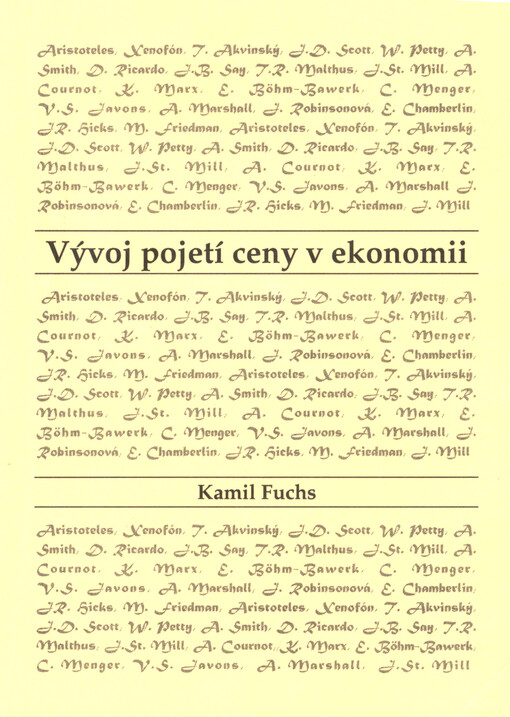 Aristoteles, Xenofón, T. Akvinský, J.D. Scott, W. Petty, A.
Smith, D. Ricardo, J.B. Say, T.R. Malthus, J.St. Mill, A.
Cournot, K. Marx, E. Böhm-Bawerk, C. Menger,
V.S. Javons, A. Marshall, J. Robinsonová, E. Chamberlin,
JR. Hicks, M. Friedman, Aristoteles, Xenofón, T. Akvinský,
J.D. Scott, W. Petty, A. Smith, D. Ricardo, J.B. Say, T.R.
Malthus, J.St. Mill, A. Cournot, K. Marx, E.
Böhm-Bawerk, C. Menger, V.S. Javons, A. Marshall J.
Robinsonová, E. Chamberlin, JR. Hicks, M. Friedman, J. Mill
Vývoj pojetí ceny v ekonomii
Aristoteles, Xenofón, T. Akvinský, J.D. Scott, W. Petty, A.
Smith, D. Ricardo, J.B. Say, T.R. Malthus, J.St. Mill, A.
Cournot, K. Marx, E. Böhm-Bawerk, C. Menger,
V.S. Javons, A. Marshall, J. Robinsonová, E. Chamberlin,
JR. Hicks, M. Friedman, Aristoteles, Xenofón, T. Akvinský,
J.D. Scott, W. Petty, A. Smith, D. Ricardo, J.B. Say, T.R.
Malthus, J.St. Mill, A. Cournot, K. Marx, E.
Böhm-Bawerk, C. Menger, V.S. Javons, A. Marshall, J.
Robinsonová, E. Chamberlin, JR. Hicks, M. Friedman, J. Mill
Kamil Fuchs
Aristoteles, Xenofón, T. Akvinský, J.D. Scott, W. Petty, A.
Smith, D. Ricardo, J.B. Say, T.R. Malthus, J.St. Mill, A.
Cournot, K. Marx, E. Böhm-Bawerk, C. Menger,
V.S. Javons, A. Marshall, J. Robinsonová, E. Chamberlin,
JR. Hicks, M. Friedman, Aristoteles, Xenofón, T. Akvinský,
J.D. Scott, W. Petty, A. Smith, D. Ricardo, J.B. Say, T.R.
Malthus, J.St. Mill, A. Cournot, K. Marx, E. Böhm-Bawerk,
C. Menger, V.S. Javons, A. Marshall, J.St. Mill